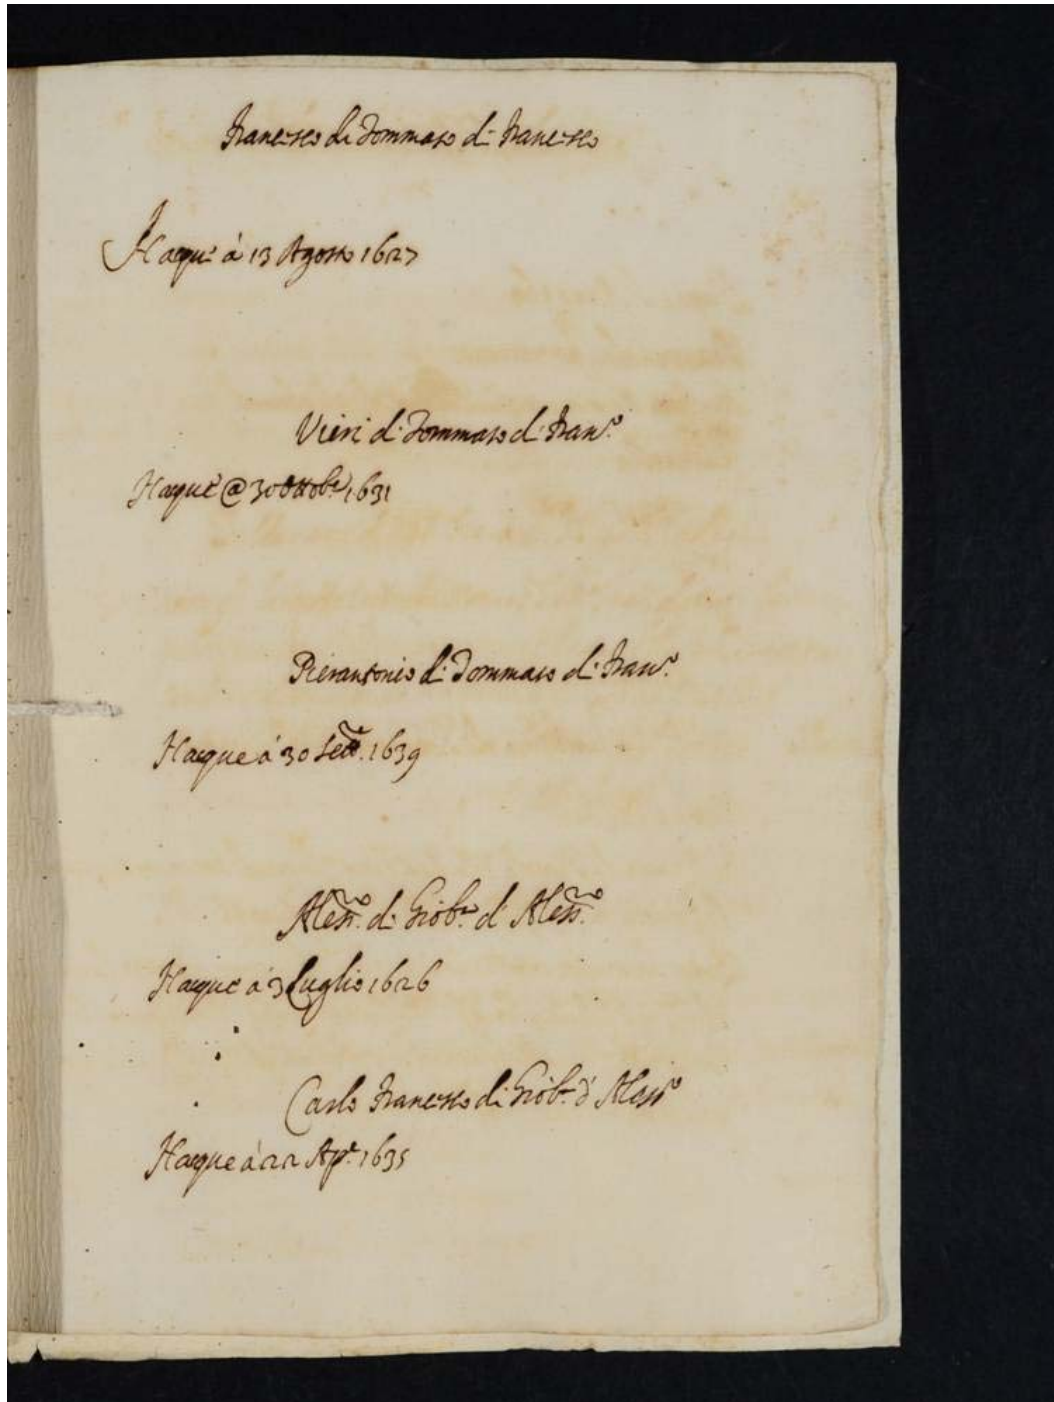 Francesco di Tommaso di Francesco
Nacque à 13 Agosto 1627
Vieri di Tommaso di Franc.o
Nacque @ 30 Ottobe 1631
Pierantonio di Tommaso di Franc.o
Nacque á 30 Sett.e 1639
Aless.o di Giob.a di Aless.o
Nacque á 3 Luglio 1626
Carlo Francesco di Giob.a d' Aless.o
Nacque á 22 Ap.e 1635